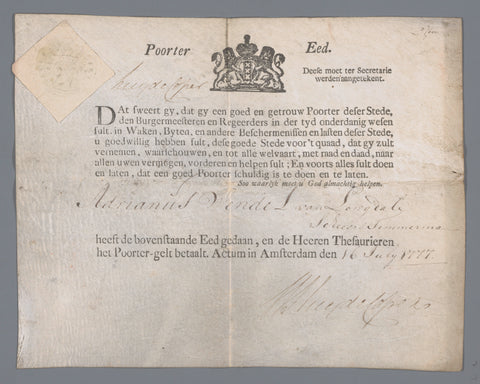 Poorter Eed.
Deese moet ter Secretarie
werden aangetekent.
Huydecoper
DAt sweert gy, dat gy een goed en getrouw Poorter deser Stede,
den Burgermeesteren en Regeerders in der tyd onderdanig wesen
sult, in Waken, Byten, en andere Beschermenissen en lasten deser Stede,
u goedwillig hebben sult, dese goede Stede voor 't quaad, dat gy zult
vernemen, waarschouwen, en tot alle welvaart, met raad en daad, naar
allen uwen vermogen, vorderen en helpen sult; En voorts alles sult doen
en laten, dat een goed Poorter schuldig is te doen en te laten.
Soo waarlyk moet u God almachtig helpen.
Adrianus Vendel van
heeft de bovenstaande Eed gedaan, en de Heeren Thesaurieren
het Poorter-gelt betaalt. Actum in Amsterdam den 16 July 1777.
Huydecoper